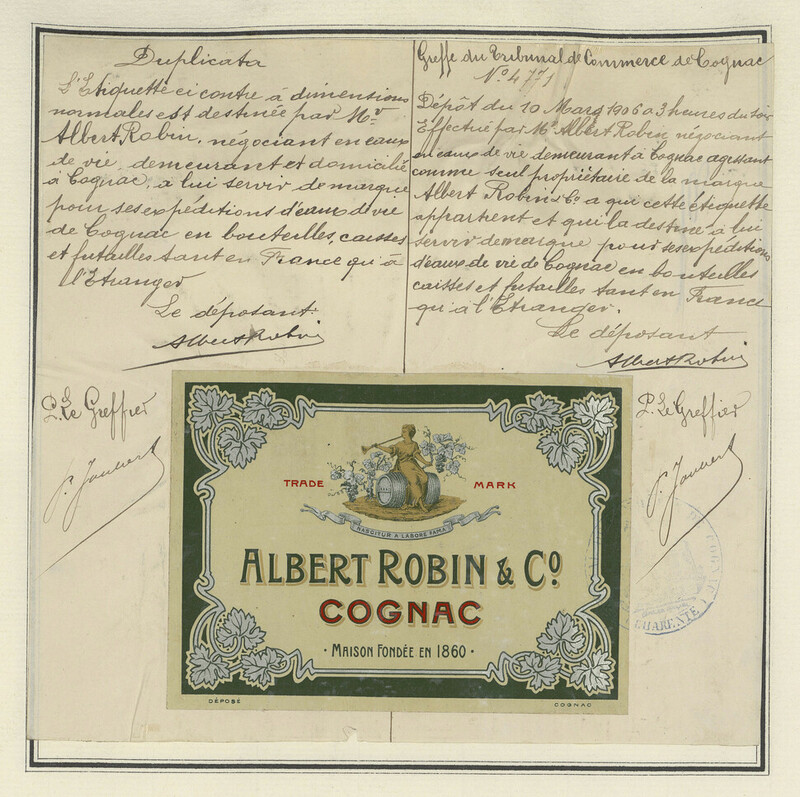 Duplicata
L'Etiquette ci contre à dimensions
normales est destinée par Mr
Albert Robin, négociant en eaux
de vie, demeurant et domicilié
à Cognac, à lui servir de marque
pour ses expéditions d'eaux de vie
de Cognac en bouteilles, caisses
et futailles tant en France qu'à
l'Etranger
Le déposant:
Albert Robin
P. Le Greffier
P. Joubert
Greffe du Tribunal de Commerce de Cognac
No 4771
Dépôt du 10 Mars 1906 à 3 heures du soir
Effectué par Mr Albert Robin négociant
en eaux de vie demeurant à Cognac agissant
comme seul propriétaire de la marque
Albert Robin & Co a qui cette étiquette
appartient et qui la destine à lui
servir de marque pour ses expéditions
d'eaux de vie de Cognac en bouteilles
caisses et futailles tant en France
qu'à l'Etranger.
Le déposant
Albert Robin
P. Le Greffier
P. Joubert
TRADE MARK
NASCITUR A LABORE FAMA
ALBERT ROBIN & Co
COGNAC
· MAISON FONDÉE EN 1860 ·
DÉPOSÉ
COGNAC
DE COGNAC
CHARENTE